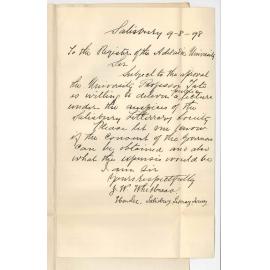 Salisbury 9-8-98
To the Register of the Adelaide University
Sir
Subject to the approval
the University Professor Tate
is willing to deliver a lecture
under the auspices of the
Salisbury Litterary Society
Please let me know
if the consent of the Governors
can be obtained and also
what the expenses would be
I am Sir
Yours respectfully
J. W. Whitbread
Hon Sec. Salisbury Literary Society